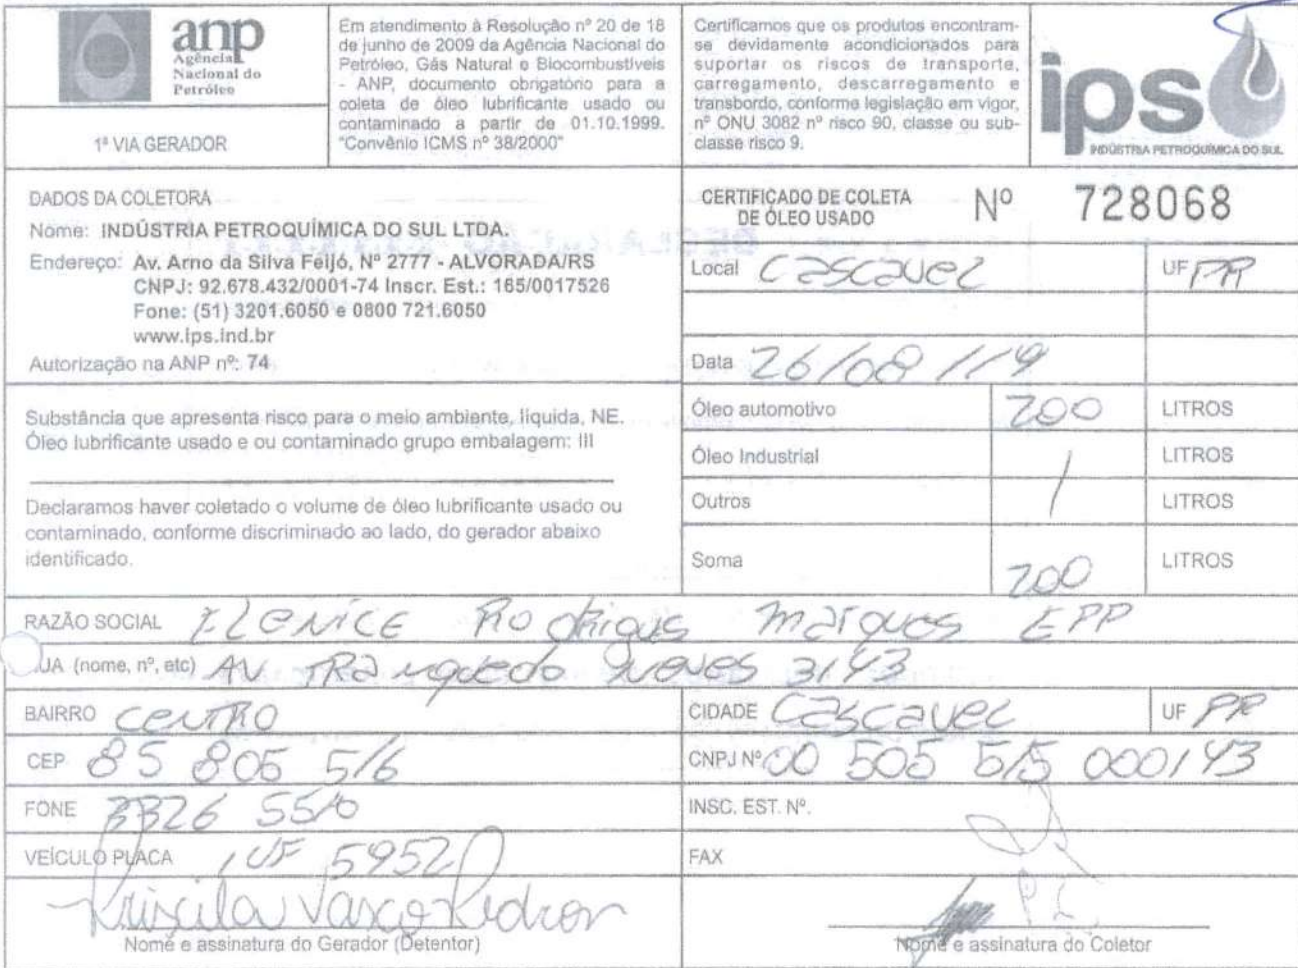 anp
Agência
Nacional do
Petróleo
1ª VIA GERADOR
Em atendimento à Resolução nº 20 de 18
de junho de 2009 da Agência Nacional do
Petróleo, Gás Natural e Biocombustíveis
- ANP, documento obrigatório para a
coleta de óleo lubrificante usado ou
contaminado a partir de 01.10.1999.
"Convênio ICMS nº 38/2000"
Certificamos que os produtos encontram-
se devidamente acondicionados para
suportar os riscos de transporte,
carregamento, descarregamento e
transbordo, conforme legislação em vigor,
nº ONU 3082 nº risco 90, classe ou sub-
classe risco 9.
ips
INDÚSTRIA PETROQUÍMICA DO SUL
DADOS DA COLETORA
Nome: INDÚSTRIA PETROQUÍMICA DO SUL LTDA.
Endereço: Av. Arno da Silva Feijó, Nº 2777 - ALVORADA/RS
CNPJ: 92.678.432/0001-74 Inscr. Est.: 165/0017526
Fone: (51) 3201.6050 e 0800 721.6050
www.ips.ind.br
Autorização na ANP nº: 74
CERTIFICADO DE COLETA
DE ÓLEO USADO
Nº 728068
Local Cascavel UF PR
Data 26/08/19
Substância que apresenta risco para o meio ambiente, líquida, NE.
Óleo lubrificante usado e ou contaminado grupo embalagem: III
Declaramos haver coletado o volume de óleo lubrificante usado ou
contaminado, conforme discriminado ao lado, do gerador abaixo
identificado.
Óleo automotivo 200 LITROS
Óleo Industrial / LITROS
Outros LITROS
Soma 200 LITROS
RAZÃO SOCIAL Elenice Rodrigus Marques EPP
UA (nome, nº, etc) AV TRanquedo Neves 3143
BAIRRO CENTRO
CIDADE Cascavel UF PR
CEP 85 805 516
CNPJ Nº 00 505 515 000143
FONE 3326 5510
INSC. EST. Nº.
VEÍCULO PLACA IUF 5952
FAX
Priscila Vasco
Nome e assinatura do Gerador (Detentor)
Nome e assinatura do Coletor